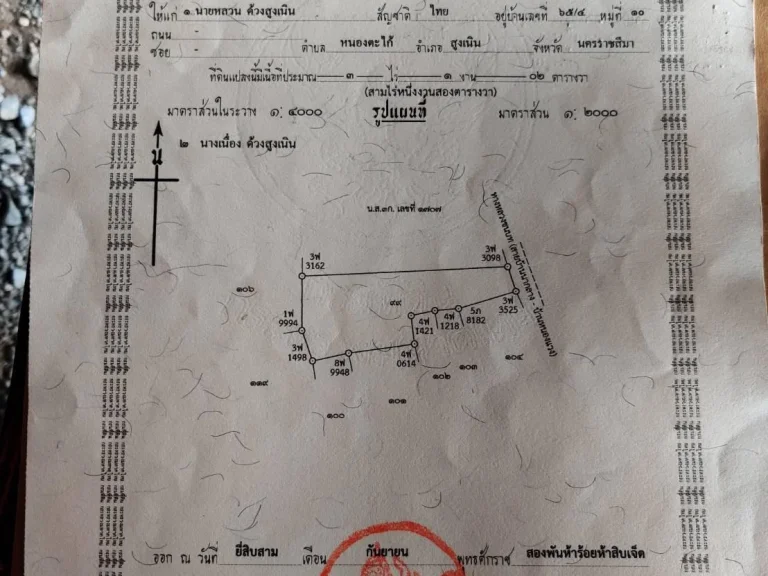 ให้แก่ ๑ นายหลวน ด้วงสูงเนิน สัญชาติ ไทย อยู่บ้านเลขที่ ๖๕/๔ หมู่ที่ ๑๐
ถนน -
ซอย - ตำบล หนองตะไก้ อำเภอ สูงเนิน จังหวัด นครราชสีมา
ที่ดินแปลงนี้มีเนื้อที่ประมาณ ๓ ไร่ ๑ งาน ๐๒ ตารางวา
(สามไร่หนึ่งงานสองตารางวา)
มาตราส่วนในระวาง ๑: ๔๐๐๐ รูปแผนที่ มาตราส่วน ๑: ๒๐๐๐
๒ นางเนื่อง ด้วงสูงเนิน
น
น.ส.๓ก. เลขที่ ๑๗๐๗
ทางหลวงชนบท (สายบ้านนากลาง - บ้านหนองแวง)
3ฟ
3162
3ฟ
3098
๑๐๖
๙๙
3ฟ
3525
1ฟ
9994
4ฟ
1421
4ฟ
1218
5ภ
8182
3ฟ
1498
8ฟ
9948
4ฟ
0614
๑๐๔
๑๐๓
๑๐๒
๑๑๙
๑๐๑
๑๐๐
ออก ณ วันที่ ยี่สิบสาม เดือน กันยายน พุทธศักราช สองพันห้าร้อยห้าสิบเจ็ด